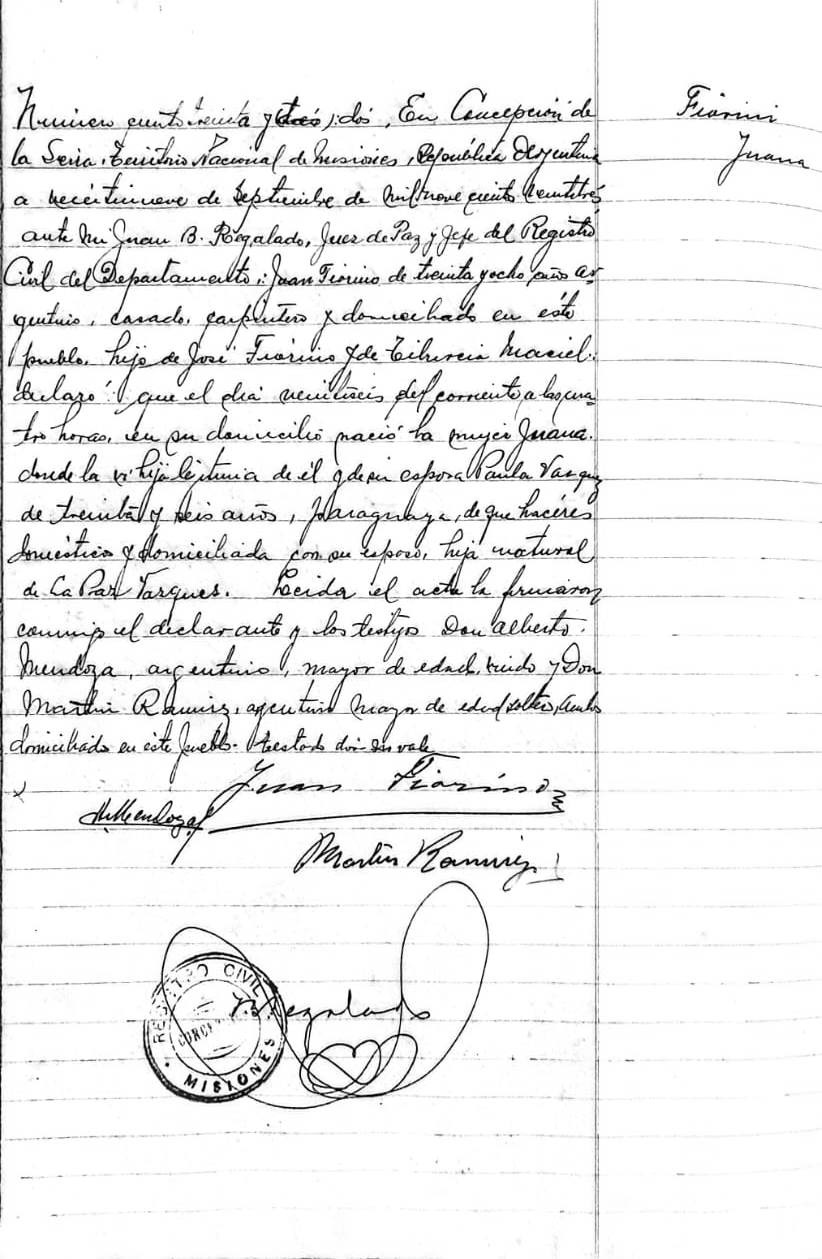 Fiorini
Juana
Numero ciento treinta y tres) dos, En Concepción de
la Serra, Territorio Nacional de Misiones, República Argentina
a veintinueve de Septiembre de mil nove ciento veintitres
ante mi Juan B. Regalado, Juez de Paz y Jefe del Registro
Civil del Departamento; Juan Fiorino de treinta y ocho años ar-
gentino, casado, carpintero y domiciliado en este
pueblo, hijo de José Fiorino y de Tiburcia Maciel:
declaró: que el dia veintiseis del corriente, a las cua-
tro horas, en su domicilio nació la mujer Juana.
donde la vi hija lejitima de él y de su esposa Paula Vasquez
de treinta y seis años, paraguaya, de que haceres
domésticos y domiciliada con su esposo, hija natural
de La Paz Vasques. Leida el acta la firmaron
conmigo el declarante y los testigos Don Alberto
Mendoza, argentino, mayor de edad, viudo y Don
Martin Ramirez, argentino mayor de edad, soltero, ambos
domiciliado en este pueblo. Testado dos no vale
Juan Fiorino
Mendoza
Martin Ramirez
Regalado
REGISTRO CIVIL
MISIONES